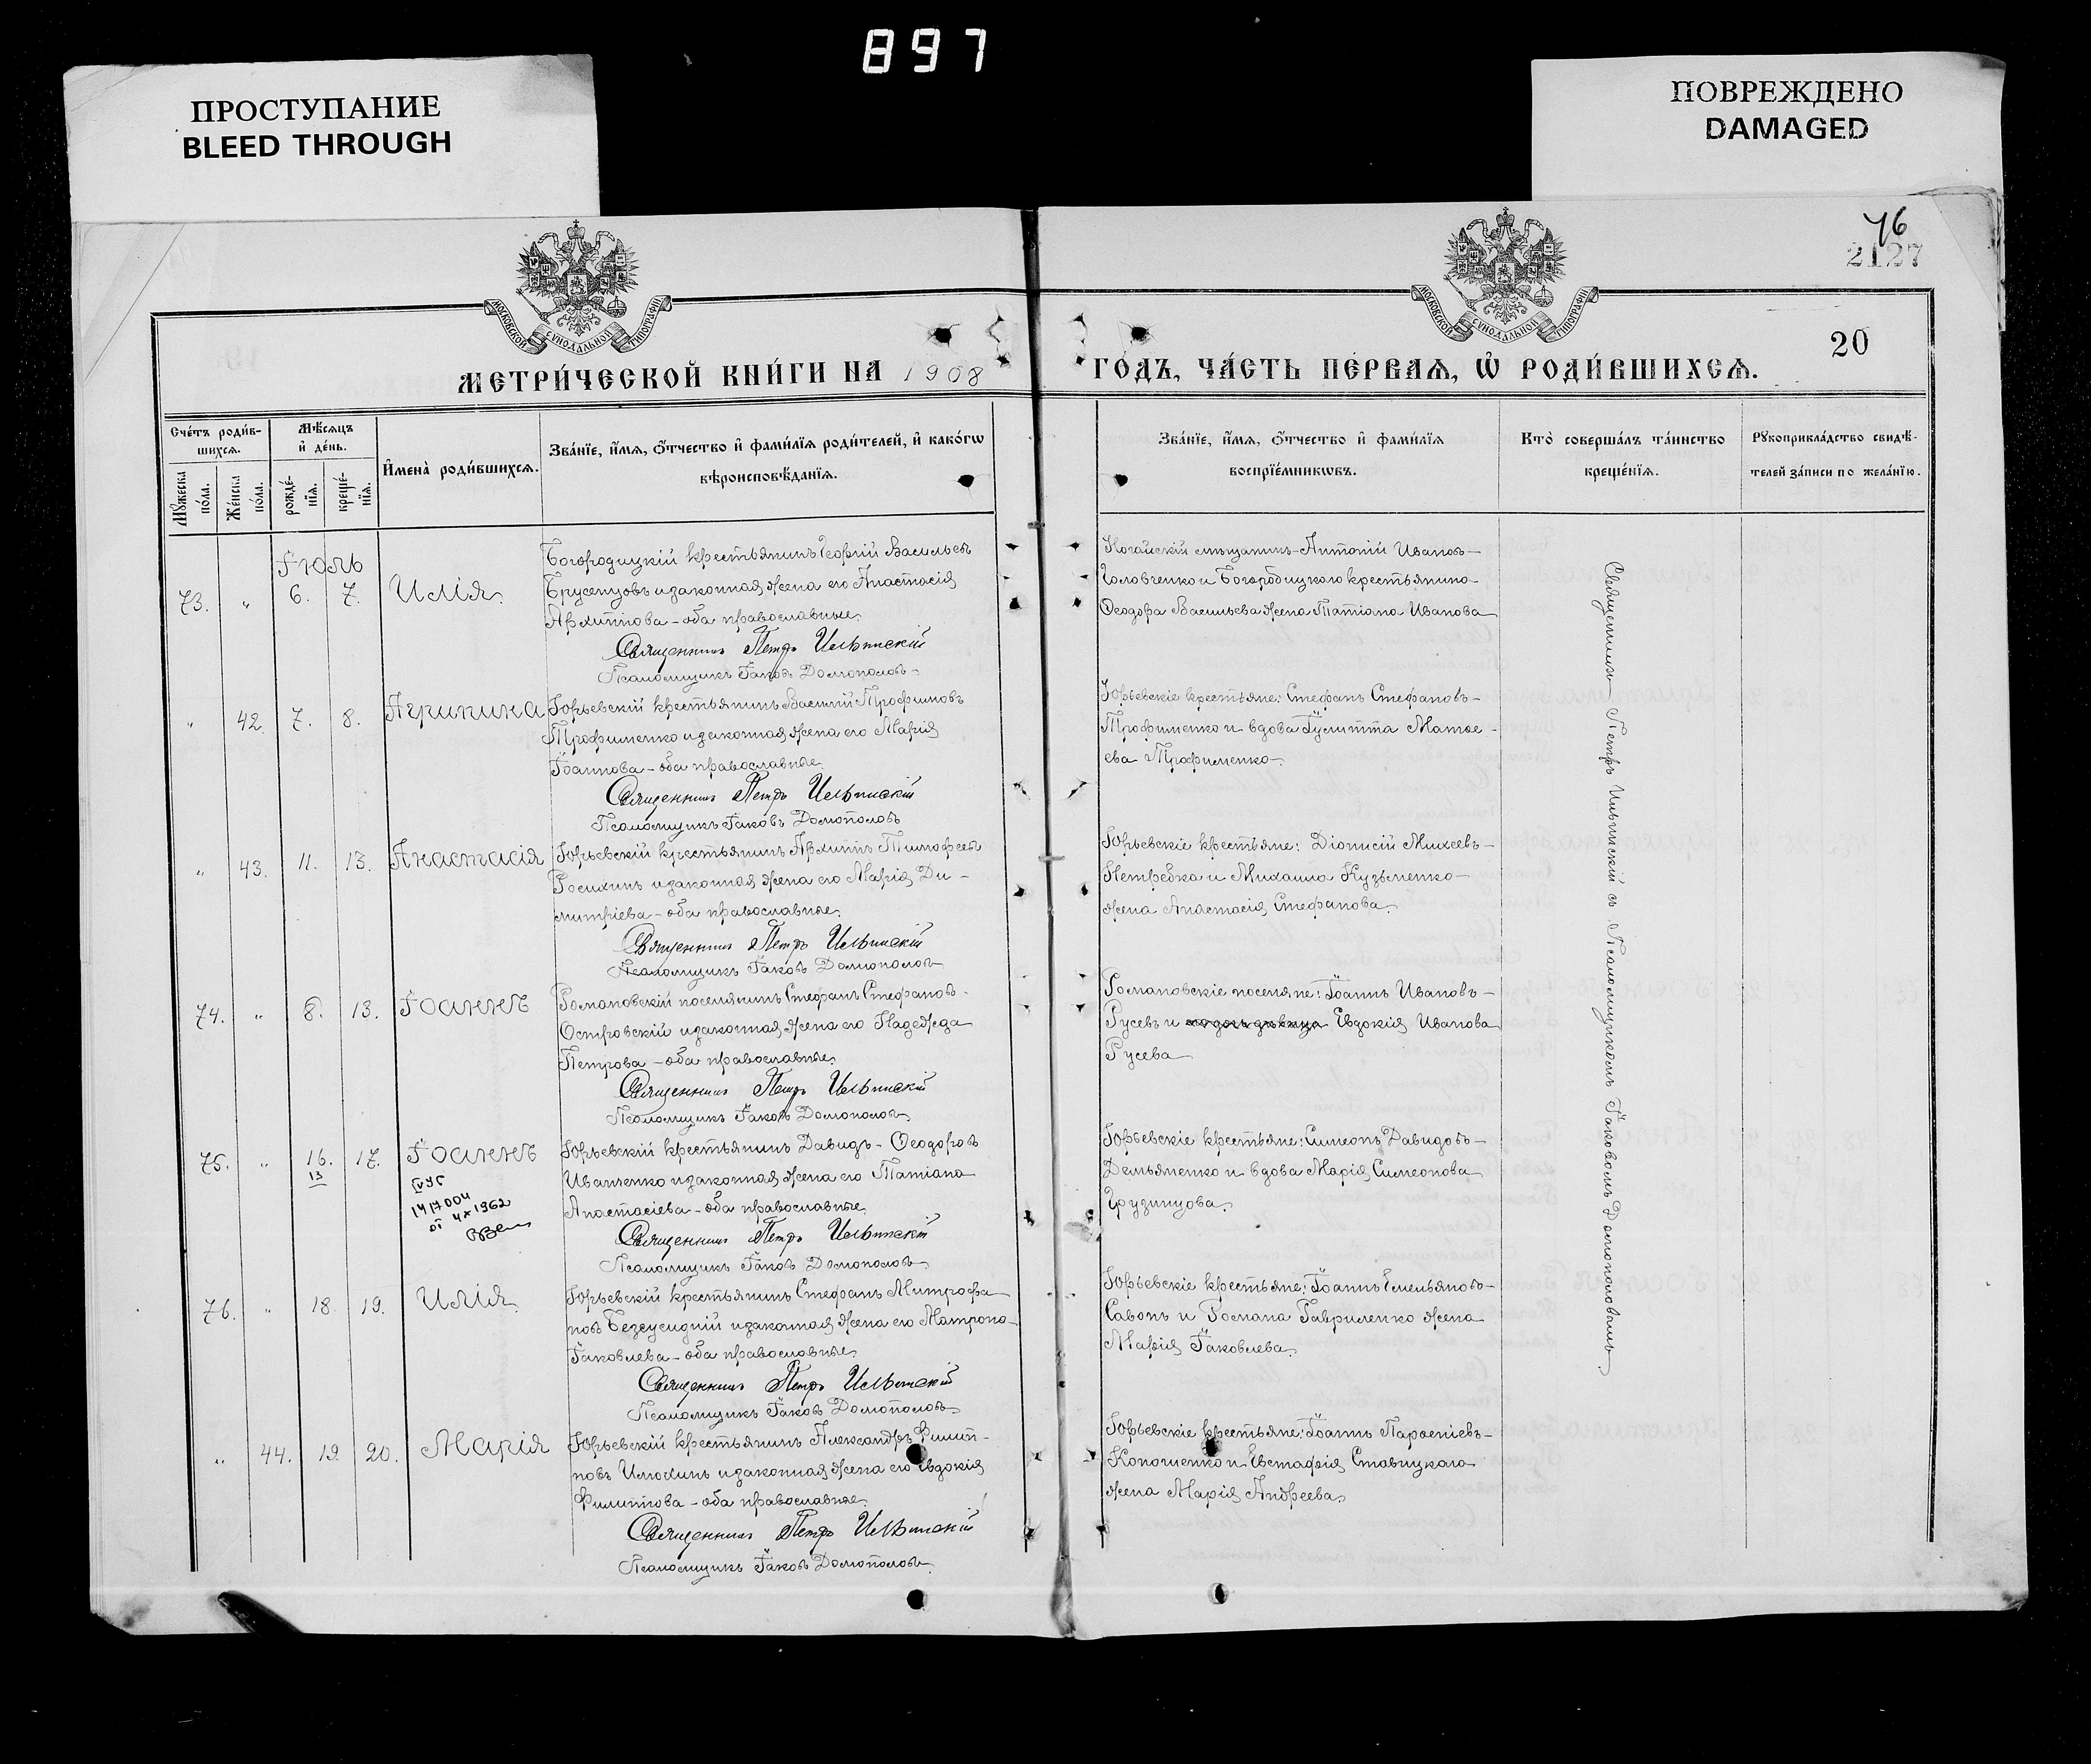 897
ПРОСТУПАНИЕ
BLEED THROUGH
ПОВРЕЖДЕНО
DAMAGED
76
2127
20
МОСКОВСКОЙ СѴНОДАЛЬНОЙ ТИПОГРАФІИ
МОСКОВСКОЙ СѴНОДАЛЬНОЙ ТИПОГРАФІИ
МЕТРИ́ЧЕСКОЙ КНИ́ГИ НА 1908
ГО́ДЪ, ЧА́СТЬ ПЕ́РВАѦ, Ѡ҆ РОДИ́ВШИХСѦ.
Сче́тъ роди́в-
шихсѧ.
Мꙋ́жеска по́ла.
Же́нска по́ла.
Мѣ́сѧцъ
и҆ де́нь.
рожде́-
нїѧ.
креще́-
нїѧ.
И҆мена̀ роди́вшихсѧ.
Зва́нїе, и҆́мѧ, ѻ҆́тчество и҆ фами́лїѧ роди́телей, и҆ како́гѡ
вѣроисповѣ́данїѧ.
Зва́нїе, и҆́мѧ, ѻ҆́тчество и҆ фами́лїѧ
воспрїе́мникѡвъ.
Кто̀ соверша́лъ та́инство
креще́нїѧ.
Рꙋкоприкла́дство свидѣ́-
телей за́писи по жела́нїю.
Іюль
73. " 6. 7. Илія.
Богородицкій крестьянинъ Георгій Васильевъ
Брусенцовъ и законная жена его Анастасія
Архиппова – оба православные.
Священникъ Петръ Ильинскій
Псаломщикъ Іаковъ Домополовъ
Ногайскій мѣщанинъ Антоній Ивановъ
Головченко и Богородицкаго крестьянина
Ѳеодора Васильева жена Татіана Иванова
" 42. 7. 8. Агрипина
Юрьевскій крестьянинъ Василій Трофимовъ
Трофименко и законная жена его Марія
Іоаннова – оба православные.
Священникъ Петръ Ильинскій
Псаломщикъ Іаковъ Домополовъ
Юрьевскіе крестьяне: Стефанъ Стефановъ
Трофименко и вдова Іулитта Матѳе-
ева Трофименко.
" 43. 11. 13. Анастасія
Юрьевскій крестьянинъ Архиппъ Тимофеевъ
Росихинъ и законная жена его Марія Ди-
митріева – оба православные.
Священникъ Петръ Ильинскій
Псаломщикъ Іаковъ Домополовъ
Юрьевскіе крестьяне: Діонисій Михеевъ
Нетребка и Михаила Кузьменко
жена Анастасія Стефанова.
74. " 8. 13. Іоаннъ
Романовскій поселянинъ Стефанъ Стефановъ
Островскій и законная жена его Надежда
Петрова – оба православные.
Священникъ Петръ Ильинскій
Псаломщикъ Іаковъ Домополовъ
Романовскіе поселяне: Іоаннъ Ивановъ
Русевъ и Евдокія Иванова
Русева
75. " 16. 17. Іоаннъ
13
1417004
от 4 X 1962
Юрьевскій крестьянинъ Давидъ Ѳеодоровъ
Иванченко и законная жена его Татіана
Анастасіева – оба православные.
Священникъ Петръ Ильинскій
Псаломщикъ Іаковъ Домополовъ
Юрьевскіе крестьяне: Симеонъ Давидовъ
Демьяненко и вдова Марія Симеонова
Грузинцова.
76. " 18. 19. Илія.
Юрьевскій крестьянинъ Стефанъ Митрофа-
новъ Безсусидній и законная жена его Матрона
Іаковлева – оба православные.
Священникъ Петръ Ильинскій
Псаломщикъ Іаковъ Домополовъ
Юрьевскіе крестьяне: Іоаннъ Емельяновъ
Савонъ и Романа Гавриленко жена
Марія Іаковлева.
" 44. 19. 20. Марія
Юрьевскій крестьянинъ Александръ Филип-
повъ Илюхинъ и законная жена его Евдокія
Филиппова – оба православные.
Священникъ Петръ Ильинскій
Псаломщикъ Іаковъ Домополовъ
Юрьевскіе крестьяне: Іоаннъ Парѳеніевъ
Кономенко и Евстафія Ставицкаго
жена Марія Андреева.
Священникъ Петръ Ильинскій съ Псаломщикомъ Іаковомъ Домополовымъ